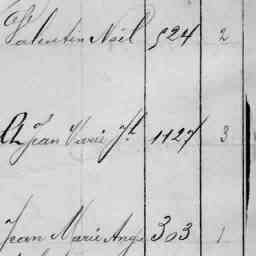 Valentin Noël 524 2
Jean Marie 1127 3
Jean Marie Ange 303 1